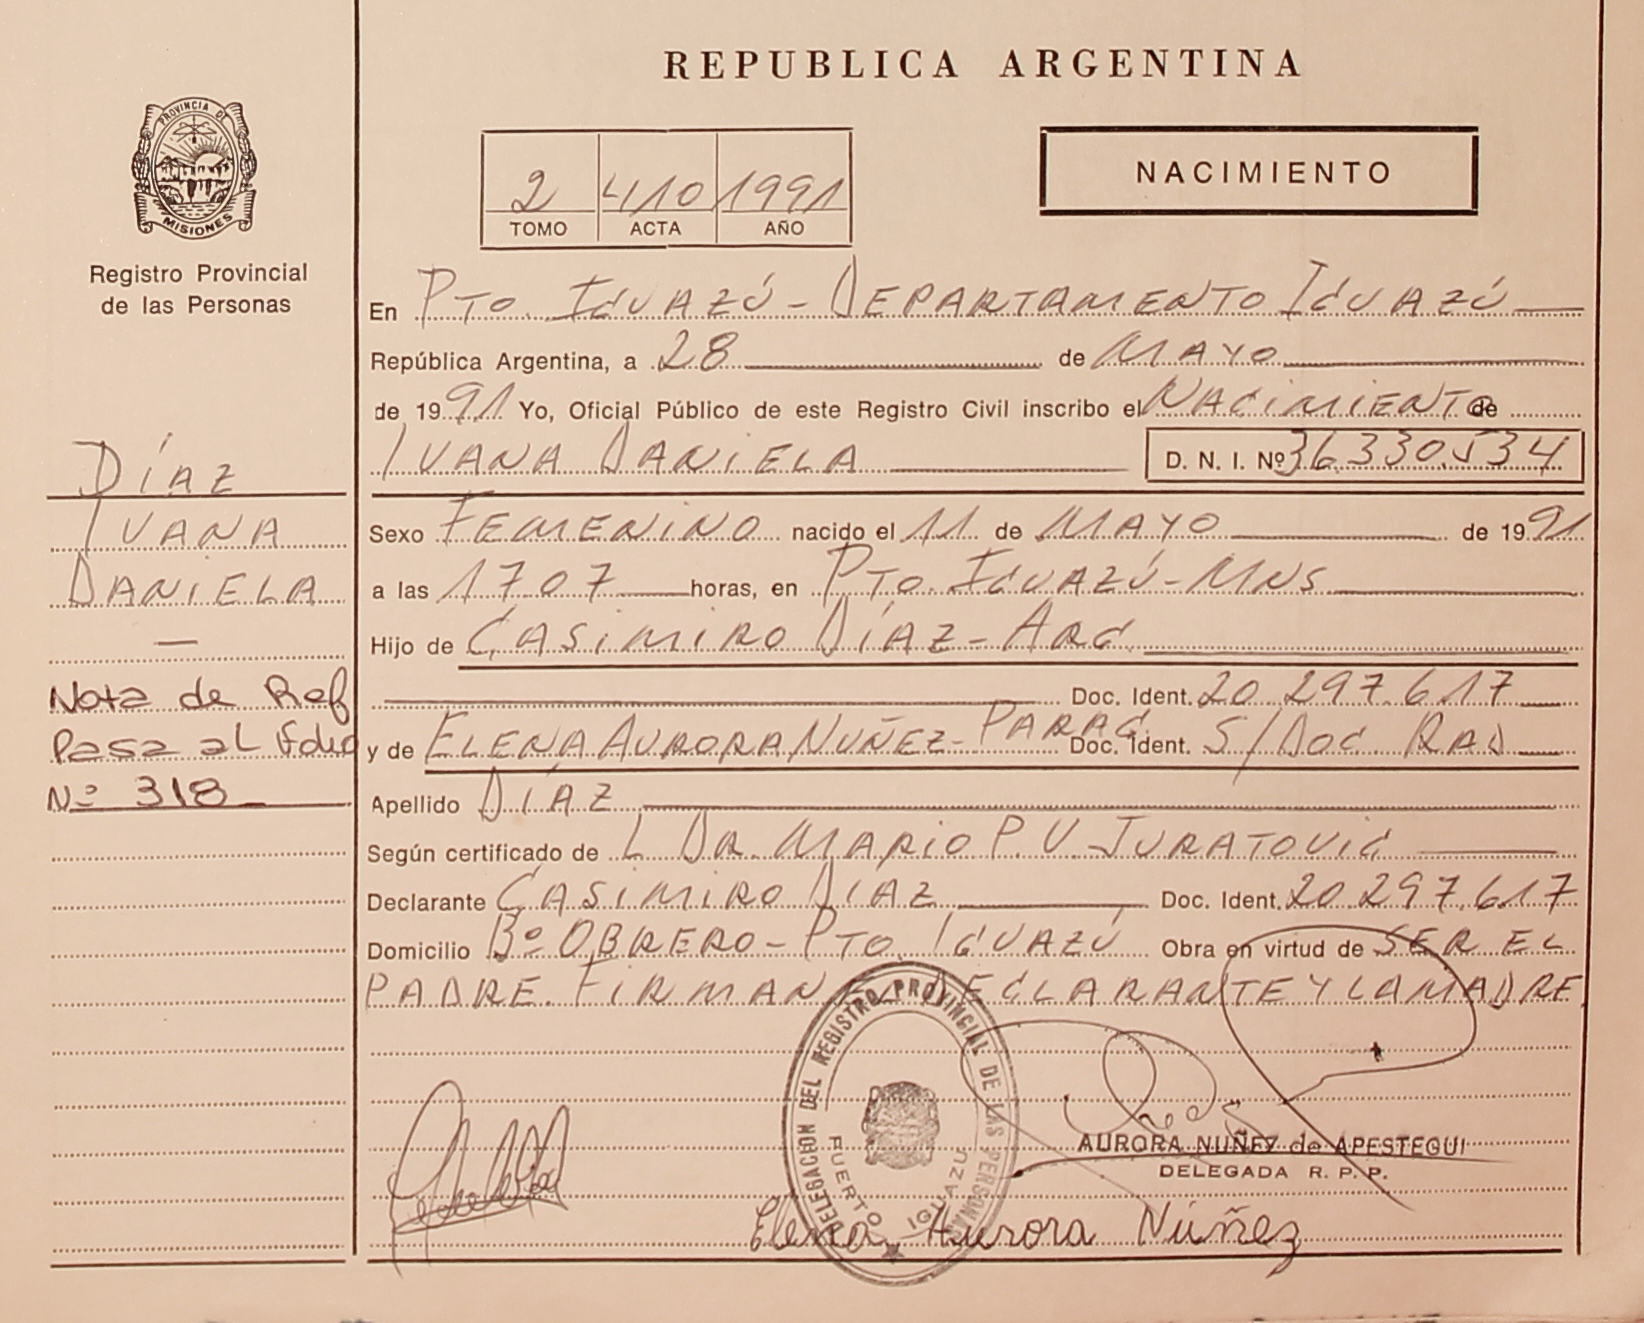 REPUBLICA ARGENTINA
PROVINCIA DE
MISIONES
Registro Provincial
de las Personas
2 410 1991
TOMO ACTA AÑO
NACIMIENTO
En Pto. Iguazú - Departamento Iguazú
República Argentina, a 28 de Mayo
de 1991 Yo, Oficial Público de este Registro Civil inscribo el Nacimiento de
Ivana Daniela D. N. I. Nº 36.330.534
Sexo Femenino nacido el 11 de Mayo de 1991
a las 1707 horas, en Pto. Iguazú - Mns
Hijo de Casimiro Díaz - Arg
Doc. Ident. 20 297.617
y de Elena Aurora Nuñez - Parag Doc. Ident. S/Doc Rad
Apellido Díaz
Según certificado de L Dr. Mario P. V. Juratovic
Declarante Casimiro Díaz Doc. Ident. 20 297.617
Domicilio Bº Obrero - Pto Iguazú Obra en virtud de ser el
padre. Firman el declarante y la madre
Díaz
Ivana
Daniela
Nota de Ref
Pasa al folio
Nº 318
DELEGACION DEL REGISTRO PROVINCIAL DE LAS PERSONAS
PUERTO IGUAZU
AURORA NUÑEZ de APESTEGUI
DELEGADA R. P. P.
Elena Aurora Núñez